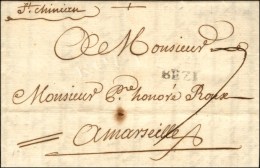 St. chinian
A Monsieur
BEZI
Monsieur Pre. honoré Roux
A marseille